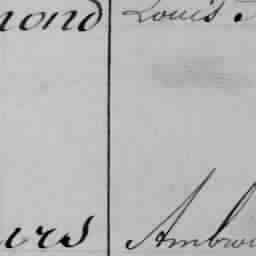 mond Louis
urs Ambroi